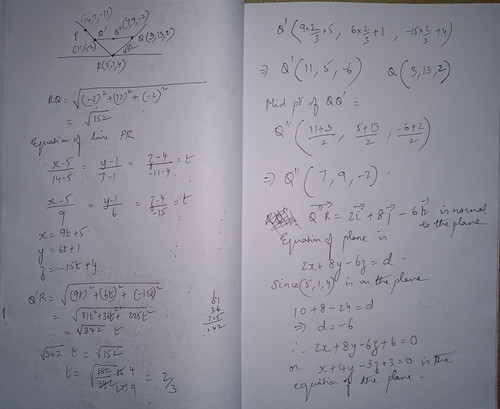 (14,7,-11)
P
Q'
Q''(7,9,-2)
(11,5,-6)
√152
Q(3,13,2)
R(5,1,4)
RQ = √(-2)²+(12)²+(-2)²
= √152
Equation of line PR
x-5/14-5 = y-1/7-1 = z-4/-11-4 = t
x-5/9 = y-1/6 = z-4/-15 = t
x = 9t+5
y = 6t+1
z = -15t+4
Q'R = √(9t)²+(6t)²+(-15t)²
= √81t²+36t²+225t²
= √342 t
1
81
36
225
342
√342 t = √152
t = √152/342 = 2/3
Q'(9×2/3+5, 6×2/3+1, -15×2/3+4)
⇒ Q'(11, 5, -6) Q(3,13,2)
Mid pt of QQ' =
Q''(11+3/2, 5+13/2, -6+2/2)
⇒ Q''(7, 9, -2)
Q''R = 2i + 8j - 6k is normal
to the plane
Equation of plane is
2x+8y-6z = d
Since (5,1,4) is on the plane
10+8-24 = d
⇒ d = -6
∴ 2x+8y-6z+6=0
or x+4y-3z+3=0 is the
equation of the plane.